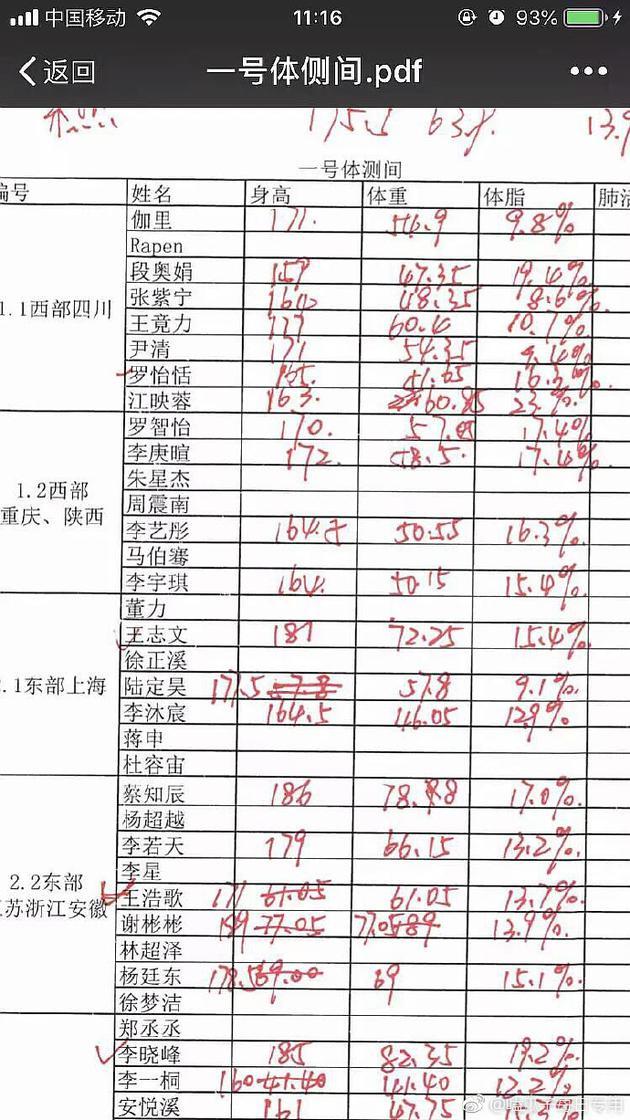 中国移动 11:16 93%
返回 一号体侧间.pdf
175.5 63.8
一号体测间
编号 姓名 身高 体重 体脂 肺活
伽里 171. 56.9 9.8%
Rapen
段奥娟 157 47.35 19.4%
张紫宁 48.35 8.6%
王竟力 177 60.4 10.7%
1.1西部四川
尹清 171 54.35 9.4%
罗怡恬 165. 51.65
江映蓉 163. 60.85 23%.
罗智怡 170. 17.4%
李庚暄 172. 58.5. 17.4%
朱星杰
1.2西部
周震南
重庆、陕西
李艺彤 50.55 16.3%
马伯骞
李宇琪 164. 50.15 15.4%
董力
王志文 181 72.25 15.4%
徐正溪
2.1东部上海
陆定昊 177.5 57.8 9.1%.
李沐宸 164.5 46.05 12.9%
蒋申
杜容宙
蔡知辰 186 17.0%.
杨超越
李若天 179 66.15 13.2%.
李星
2.2东部
王浩歌 171 61.05 61.05 13.7%.
江苏浙江安徽
谢彬彬 189 77.05 77.05 89 13.9%.
林超泽
杨廷东 178.5 69.00 69 15.1%.
徐梦洁
郑丞丞
李晓峰 185 82.35 19.2%
李一桐 160 41.40 41.40 12.2%
安悦溪 161 47.75